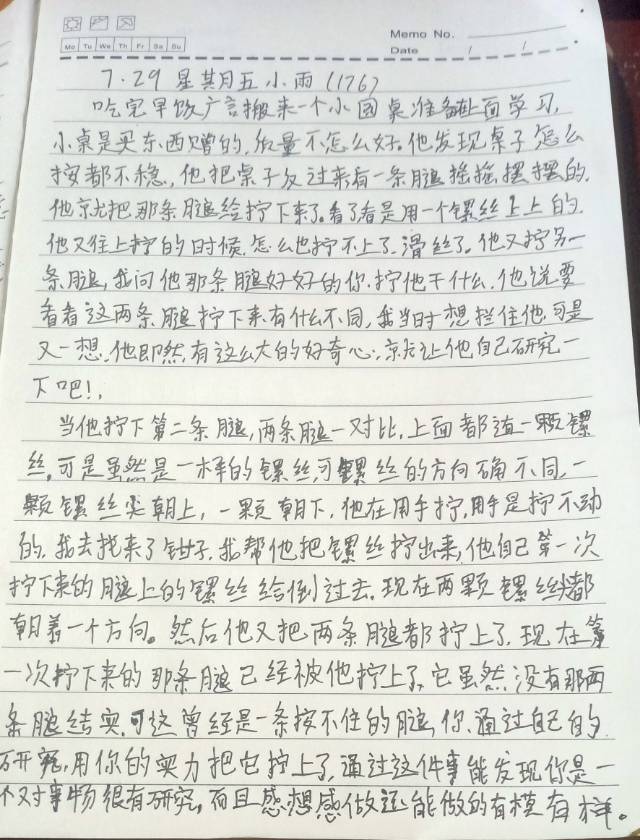 Memo No.
Mo Tu We Th Fr Sa Su
Date / /
7.29 星其月五 小雨 (176)
吃完早饭广言搬来一个小圆桌准备在上面学习,
小桌是买东西赠的,质量不怎么好。他发现桌子怎么
按都不稳,他把桌子反过来有一条腿摇摇摆摆的.
他就把那条腿给拧下来了。看了看是用一个螺丝上上的.
他又往上拧的时候,怎么也拧不上了.滑丝了。他又拧另一
条腿,我问他那条腿好好的你.拧他干什么.他说要
看看这两条腿拧下来有什么不同,我当时想拦住他,可是
又一想,他即然有这么大的好奇心,就让他自己研究一
下吧!,
当他拧下第二条腿,两条腿一对比,上面都连一颗螺
丝,可是虽然是一样的螺丝,可螺丝的方向确不同,一
颗螺丝尖朝上,一颗朝下,他在用手拧,用手是拧不动
的,我去找来了钳子,我帮他把螺丝拧出来,他自己第一次
拧下来的腿上的螺丝给倒过去.现在两颗螺丝都
朝着一个方向。然后他又把两条腿都拧上了.现在第
一次拧下来的那条腿已经被他拧上了,它虽然没有那两
条腿结实,可这曾经是一条按不住的腿,你.通过自己的
研究,用你的实力把它拧上了,通过这件事能发现你是一
个对事物很有研究,而且感想感做还能做的有模有样。